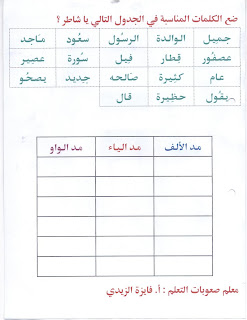 ضع الكلمات المناسبة في الجدول التالي يا شاطر ؟
جميل الوالدة الرسول سعود ماجد
عصفور قطار فيل سورة عصير
عام كثيرة صالحه جديد يصحو
يقول حظيرة قال
مد الألف مد الياء مد الواو
معلم صعوبات التعلم : أ. فايزة الزيدي